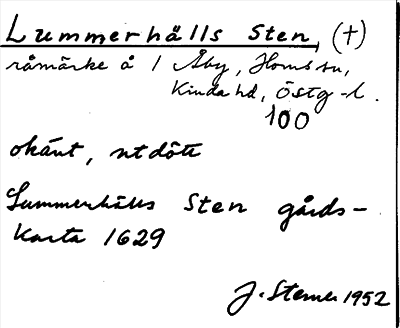 Lummerhälls Sten, (+)
råmärke å 1 Åby, Horns sn,
Kinda hd, Östg-l.
100
okänt, utdött
Lummerhälls Sten gårds-
karta 1629
J. Sterner 1952